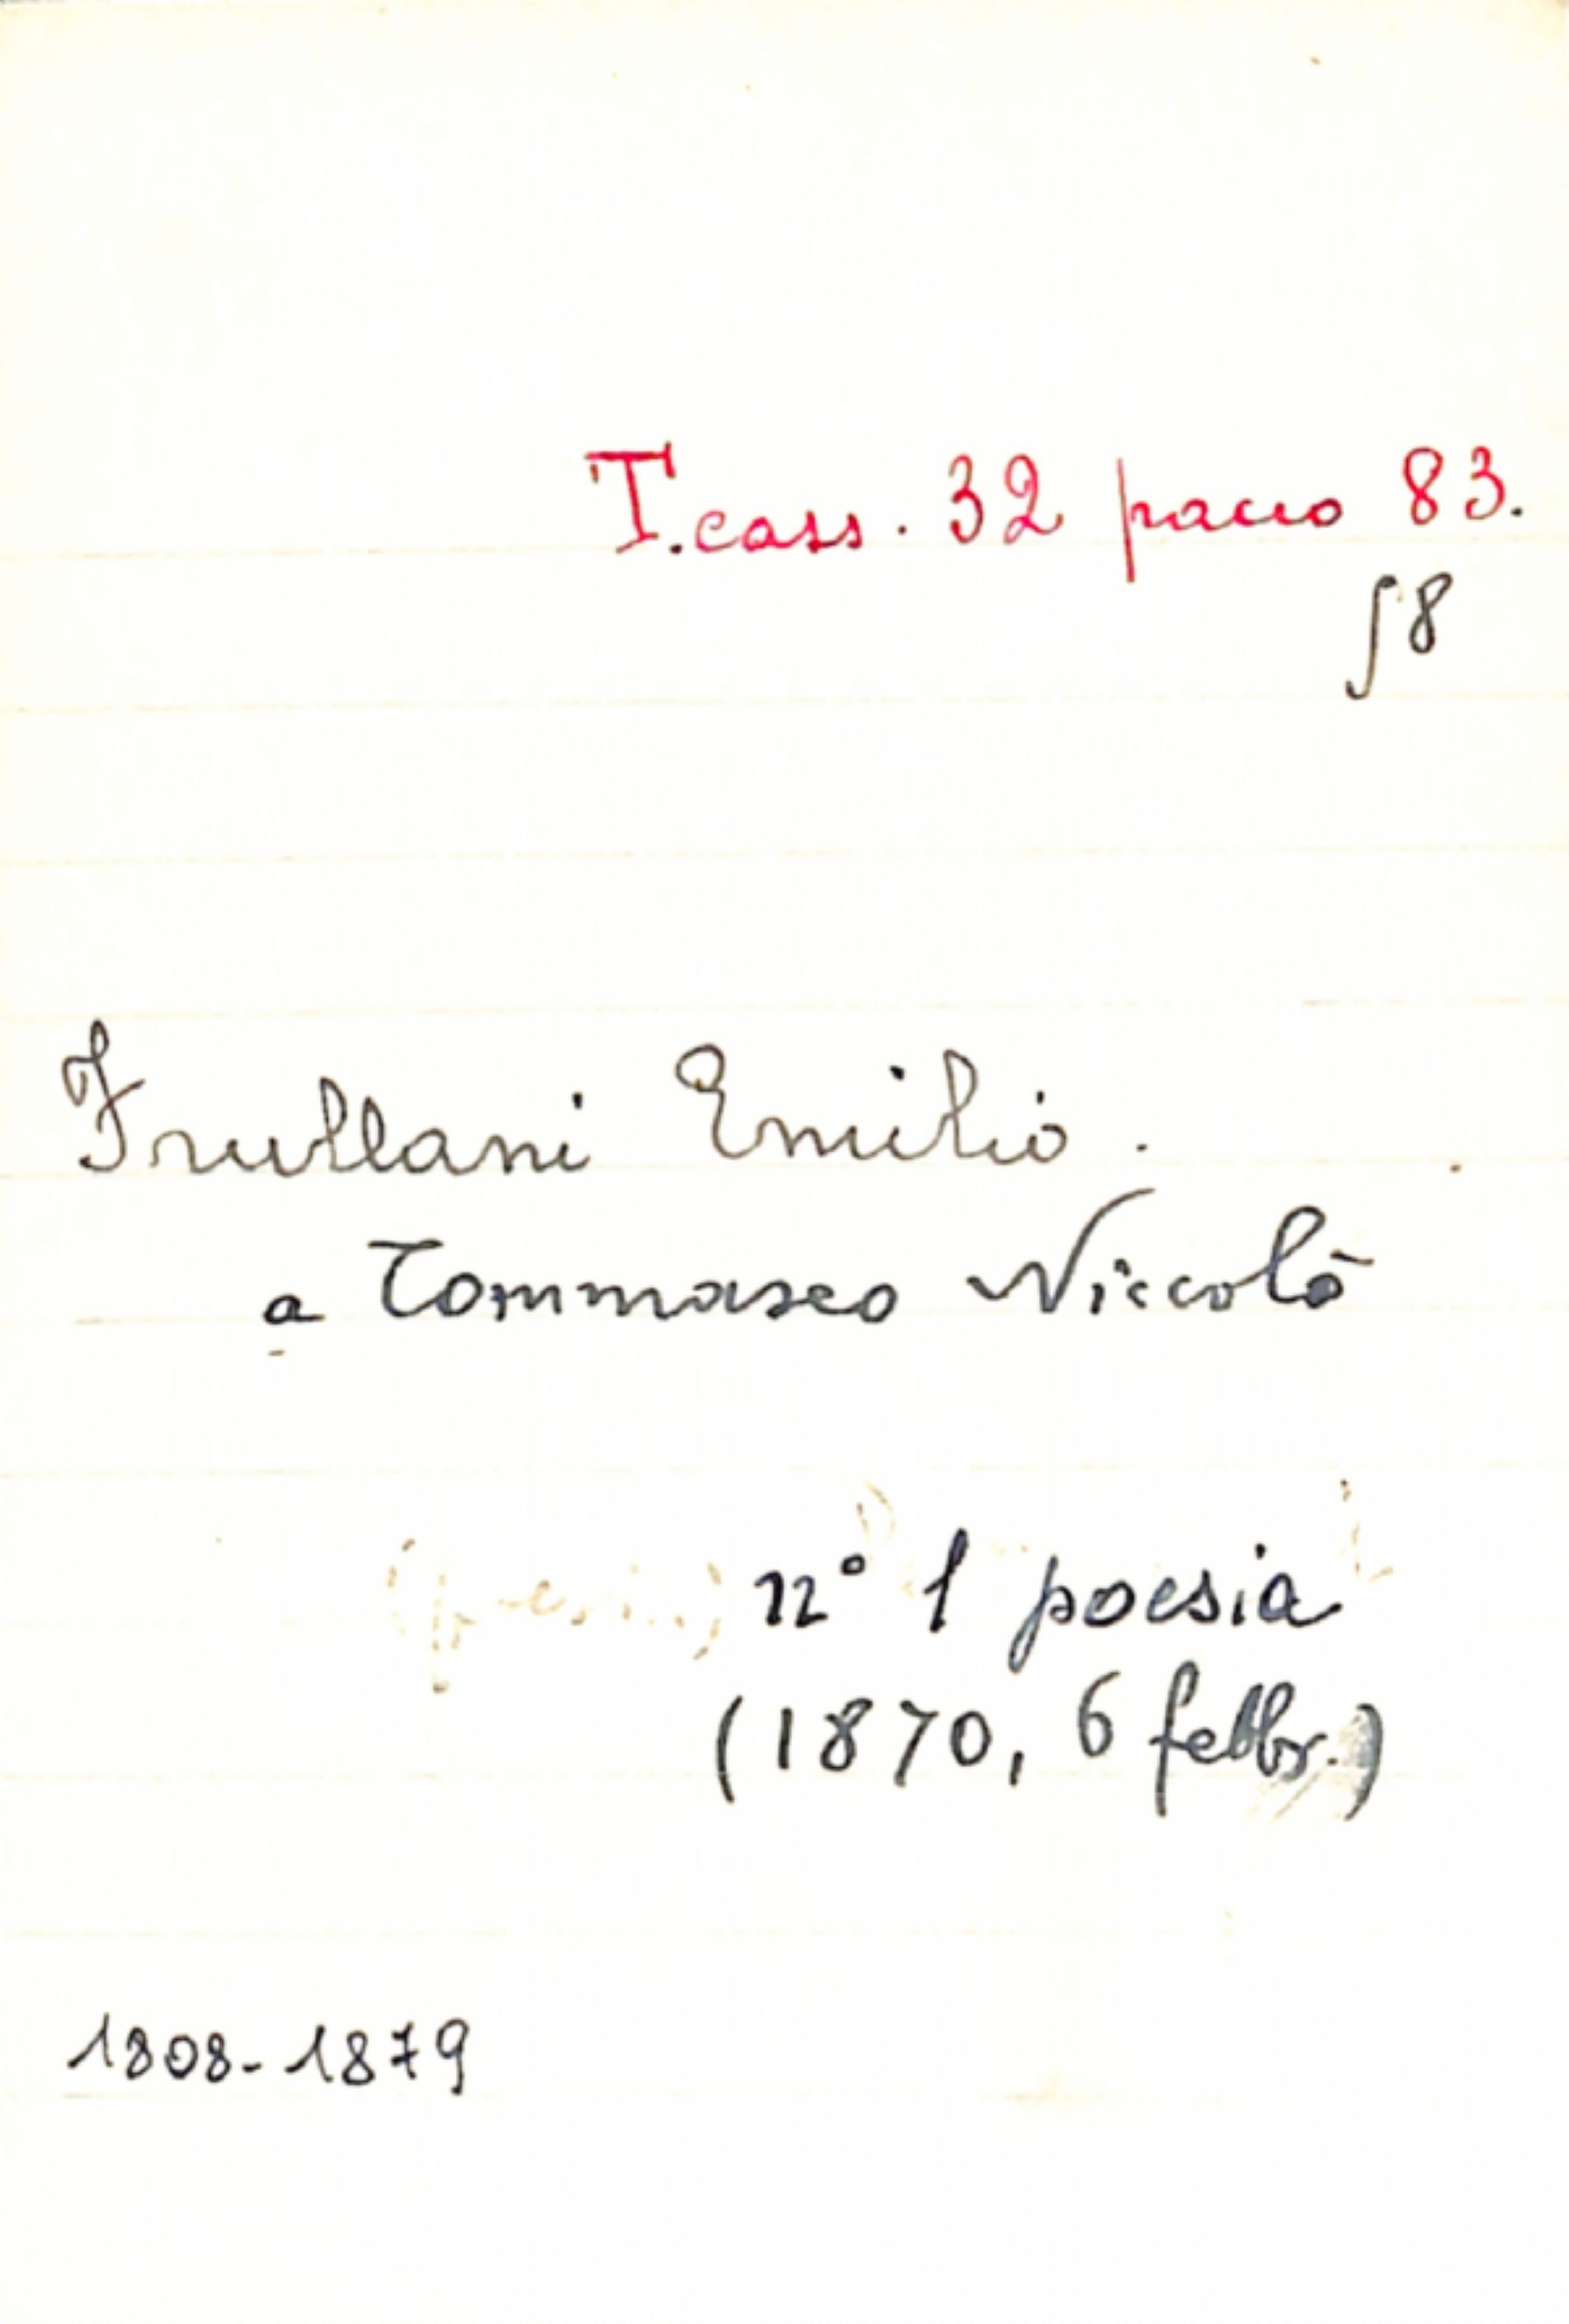 T. cass. 32 pacco 83.
∫8
Frullani Emilio.
a Tommaseo Niccolò
n° 1 poesia
(1870, 6 febbr.)
1808-1879